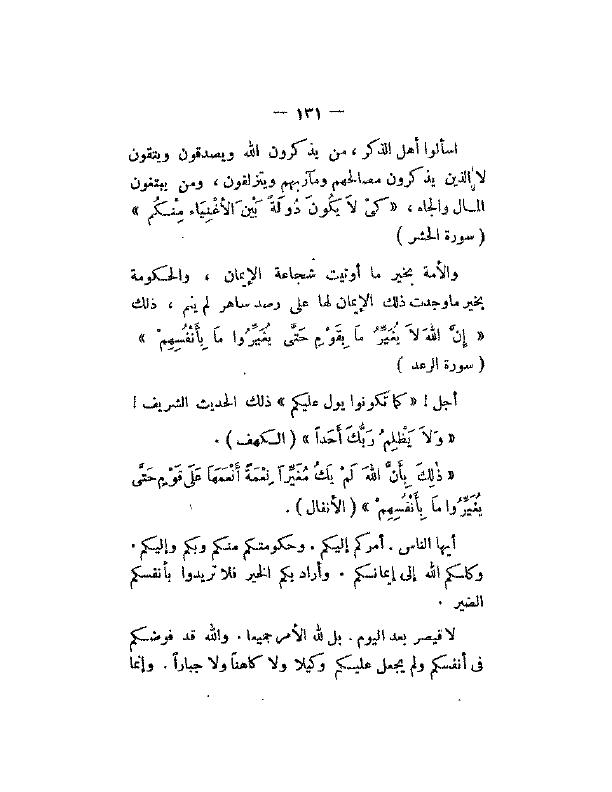 — ١٣١ —
اسألوا أهل الذكر ، من يذكرون الله ويصدقون ويتقون
لا الذين يذكرون مصالحهم ومآربهم ويتزلفون ، ومن يبتغون
المال والجاه ، « كَىْ لاَ يَكُونَ دُولَةً بَيْنَ الأَغْنِيَاءِ مِنْكُم »
( سورة الحشر )
والأمة بخير ما أوتيت شجاعة الإيمان ، والحكومة
بخير ما وجدت ذلك الإيمان لها على رصد ساهر لم ينم ، ذلك
« إِنَّ اللهَ لاَ يُغَيِّرُ مَا بِقَوْمٍ حَتَّى يُغَيِّرُوا مَا بِأَنْفُسِهِمْ »
( سورة الرعد )
أجل ! « كما تكونوا يول عليكم » ذلك الحديث الشريف !
« وَلاَ يَظْلِمُ رَبُّكَ أَحَداً » ( الكهف ) .
« ذٰلِكَ بِأَنَّ اللهَ لَمْ يَكُ مُغَيِّراً نِعْمَةً أَنْعَمَهَا عَلَى قَوْمٍ حَتَّى
يُغَيِّرُوا مَا بِأَنْفُسِهِمْ » ( الأنفال ) .
أيها الناس . أمركم إليكم . وحكومتكم منكم وبكم وإليكم .
وكلكم الله إلى إيمانكم . وأراد بكم الخير فلا تريدوا بأنفسكم
الضير .
لا قيصر بعد اليوم . بل لله الأمر جميعا . والله قد فوضكم
فى أنفسكم ولم يجعل عليكم وكيلا ولا كاهناً ولا جباراً . وإنما